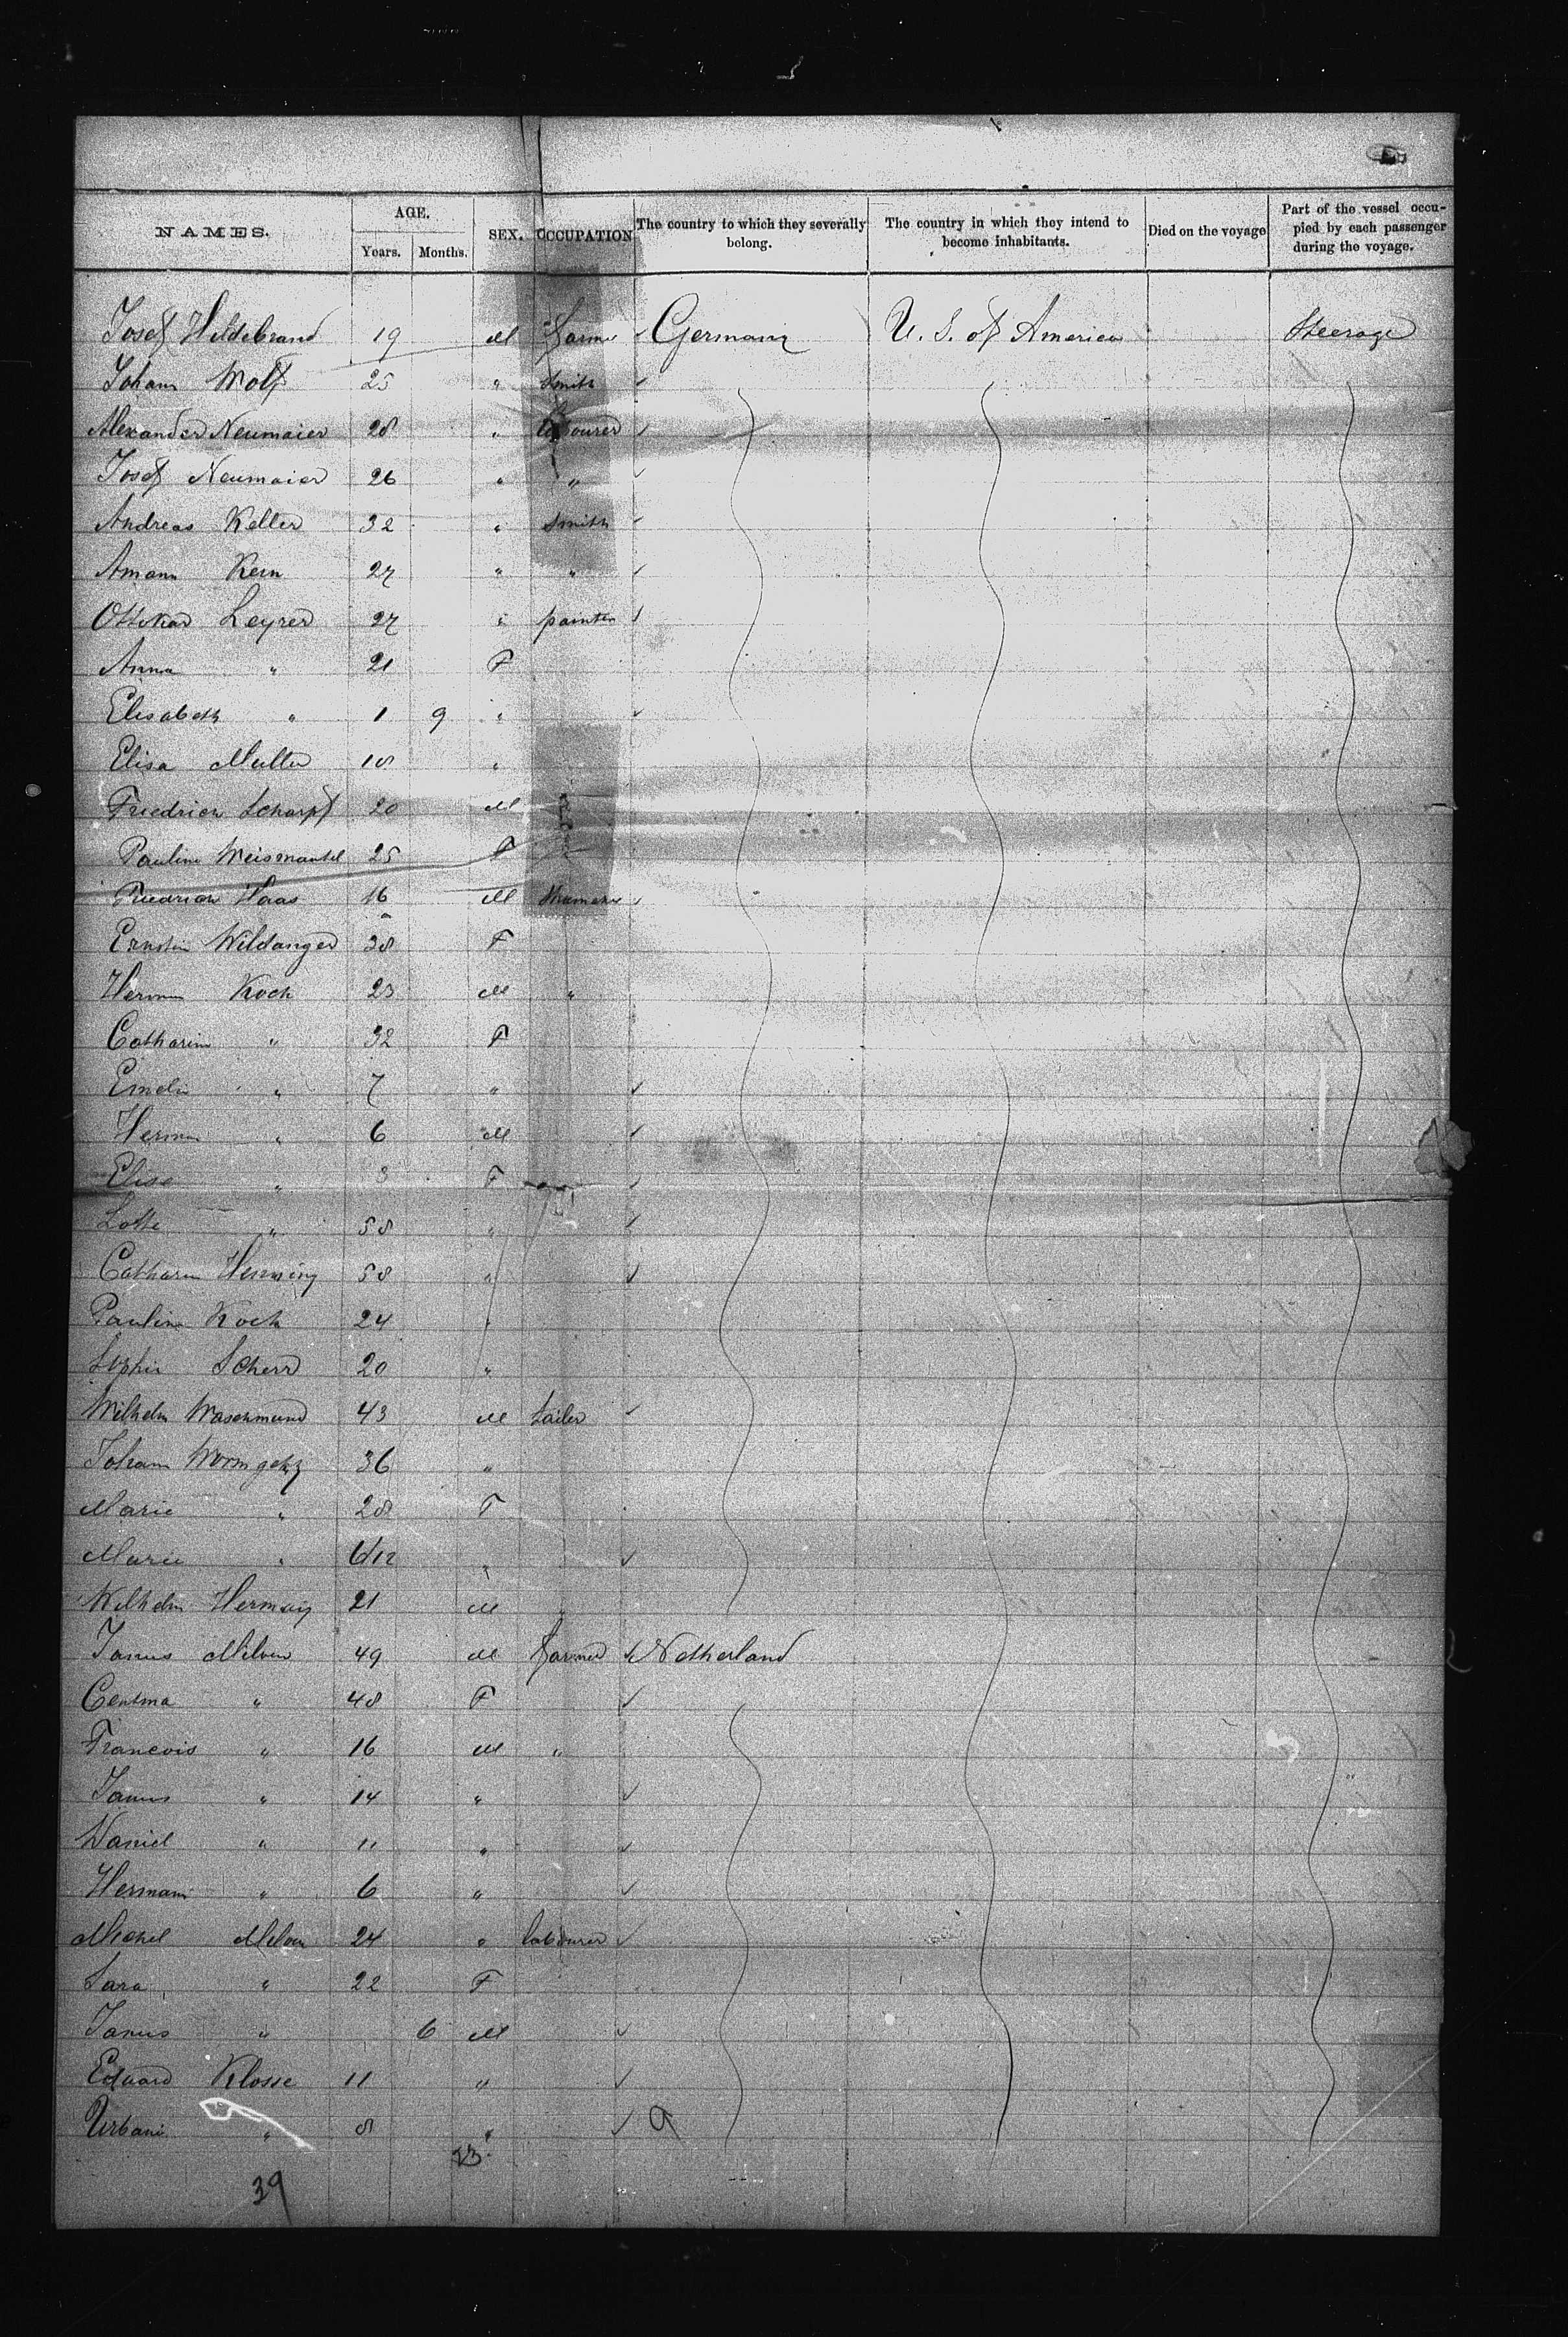 NAMES. AGE. SEX. OCCUPATION The country to which they severally belong. The country in which they intend to become inhabitants. Died on the voyage Part of the vessel occupied by each passenger during the voyage.
Years. Months.
Josef Hildebrand 19 M Germany U. S. of America Steerage
Johann Wolf 25 " Smith
Alexander Neumaier 28 " Labourer
Josef Neumaier 26 " "
Andreas Keller 32 " Smith
Amann Kern 27 " "
Ottokar Leyrer 27 " painter
Anna " 21 F
Elisabeth " 1 9 "
Elisa Muller 18 "
Friedrich Scharpf 20 M
Pauline Weismantel 25 F
Friedrich Haas 16 M
Ernstin Wildanger 38 F
Herman Koch 23 M "
Catharine " 32 F
Emelie " 7 "
Herman " 6 M
Elise " 3 F
Lotte " 58 "
Catharin Henning 58 "
Pauline Koch 24 "
Sophie Scherr 20 "
Wilhelm Waschmund 43 M tailer
Johann 36 "
Marie " 28 F
Marie " 6/12 "
Wilhelm 21 M
49 M farmer Netherland
" 48 F
Francois " 16 M "
" 14 "
Daniel " 11 "
Hermann " 6 "
Michel 24 " labourer
Sara " 22 F
" 6 M
Eduard Klosse 11 "
Urbani " 8 " 9
23
39